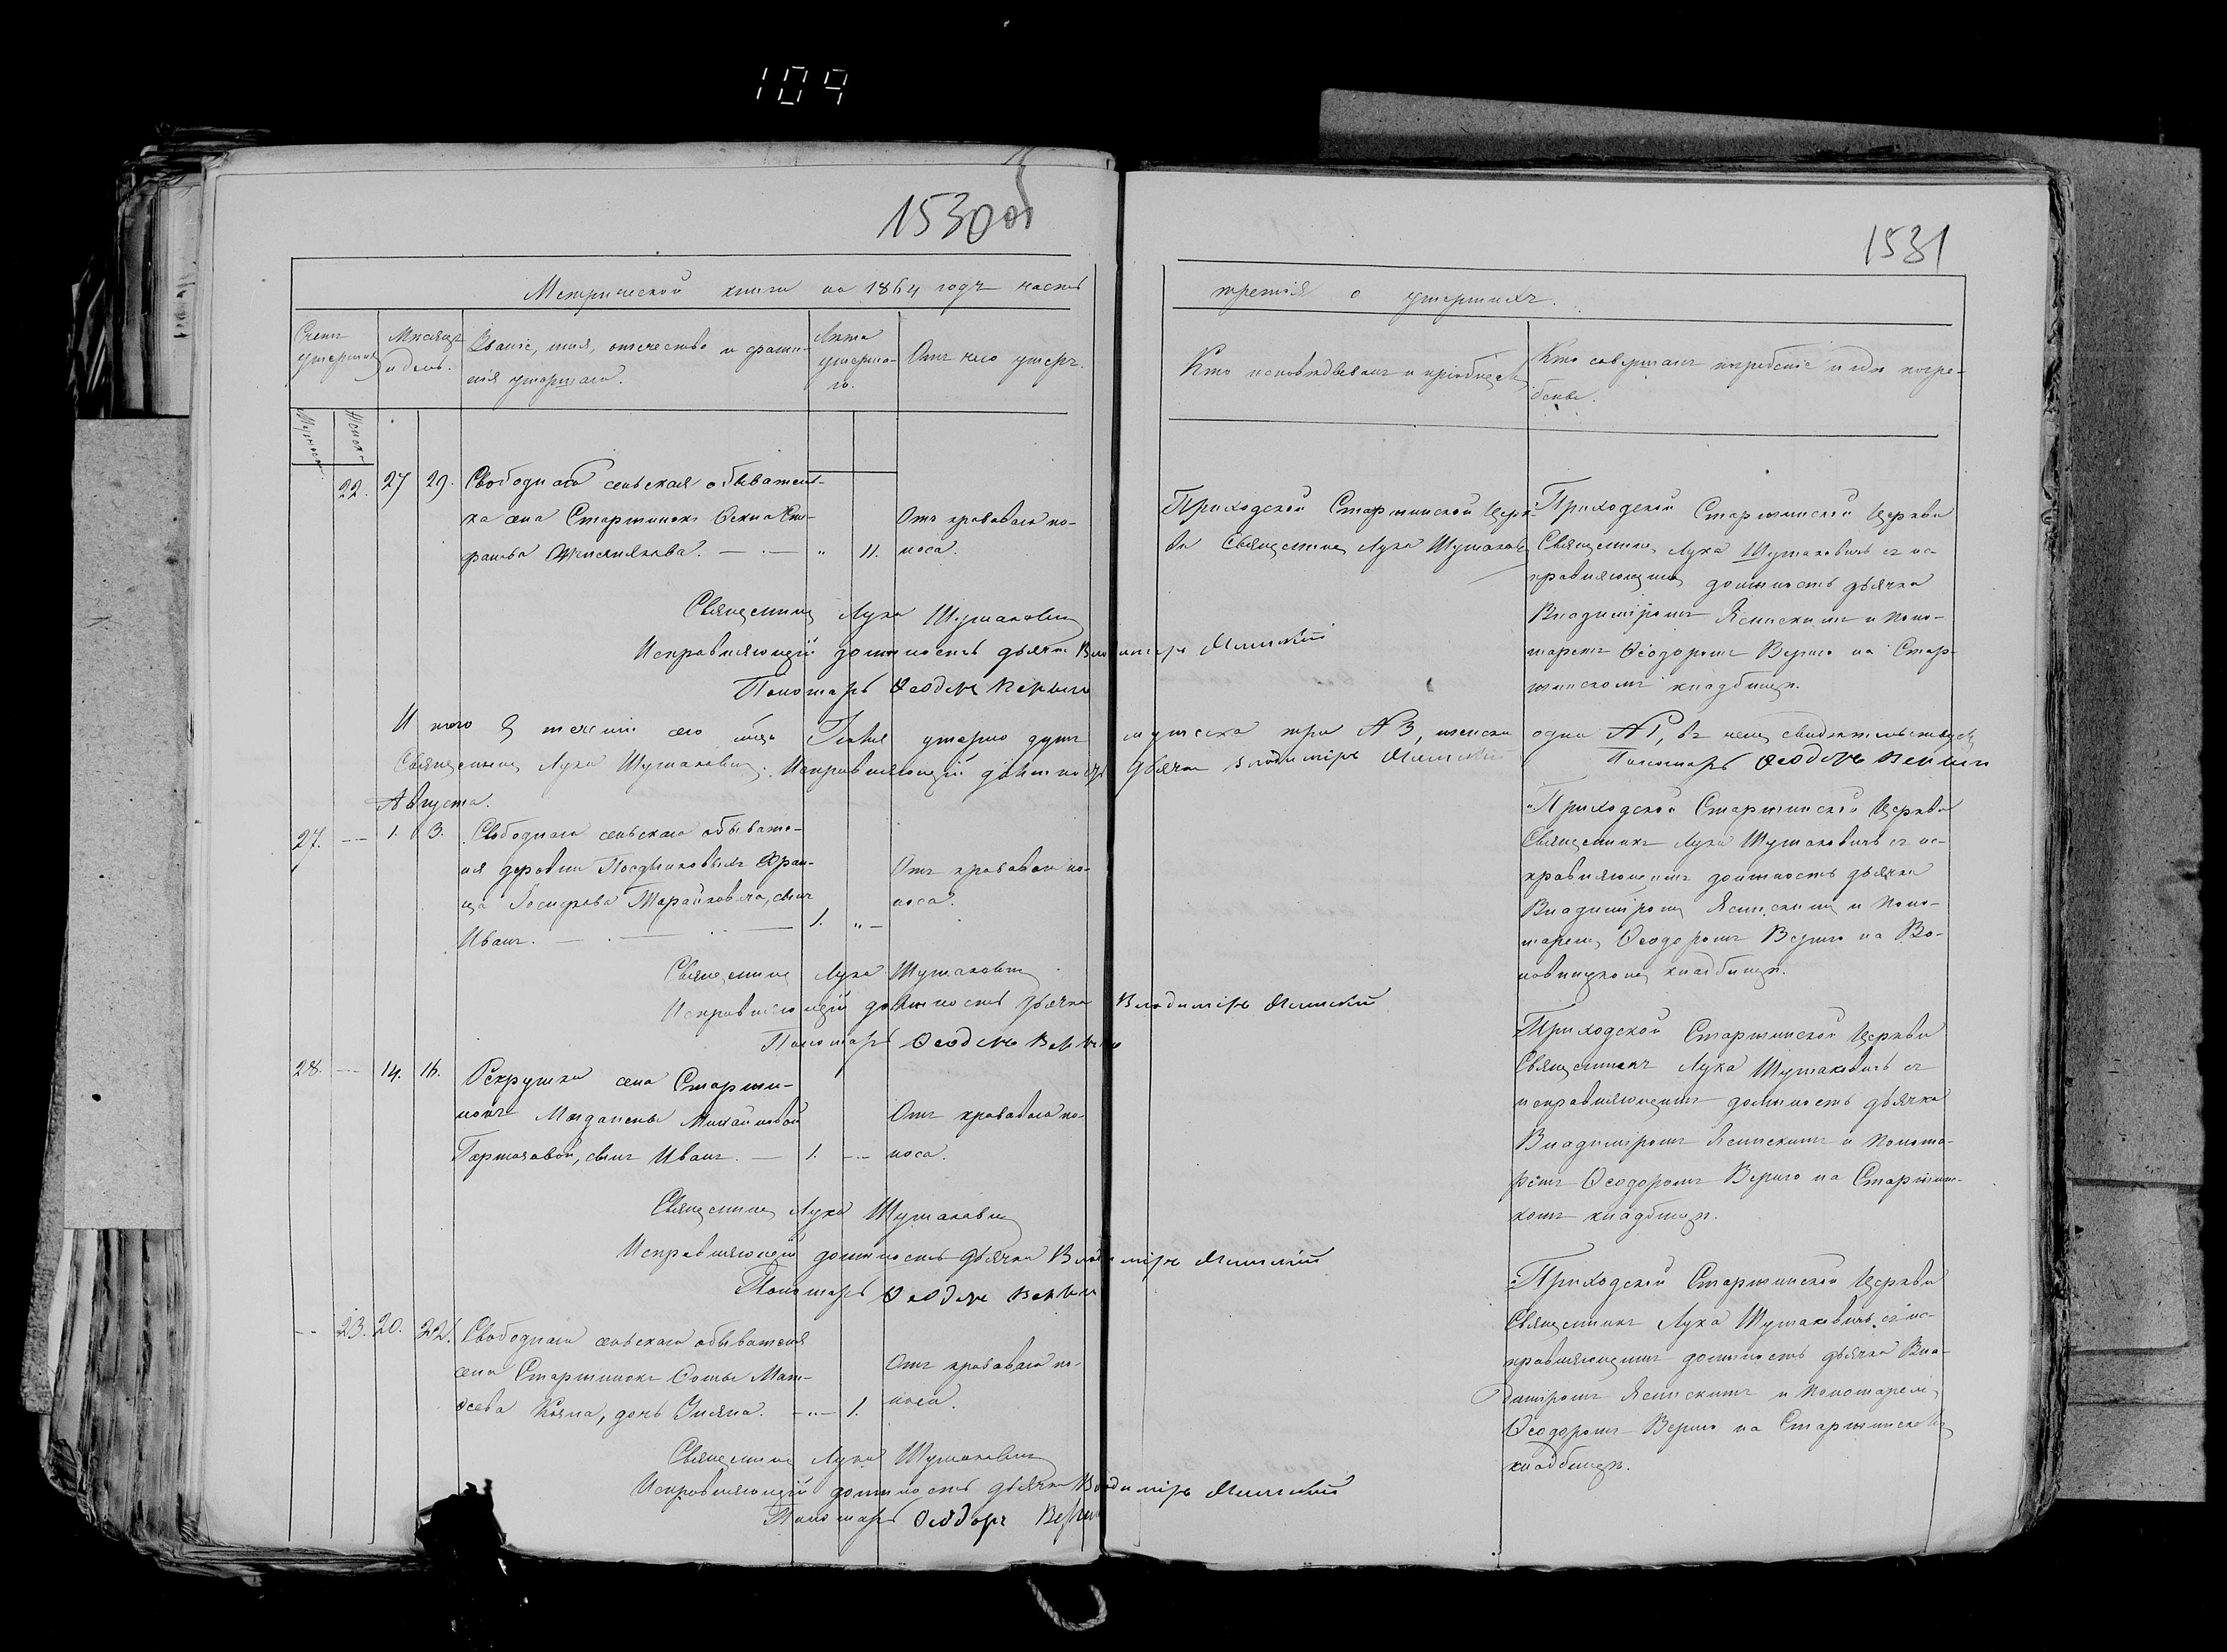 109
1530 об
1531
Метрической книги на 1864 годъ часть
третія о умершихъ.
Счетъ умершихъ
Мѣсяцъ и день.
Званіе, имя, отчество и фами-
лія умершаго.
Лѣта
умерша-
го.
Отъ чего умеръ.
Кто исповѣдывалъ и пріобщалъ
Кто совершалъ погребеніе и гдѣ погре-
бены.
22. 27 29. Свободнаго сельская обыватель-
ка села Старжинокъ
" 11.
Отъ криваваго по-
носа.
Приходской Старжинской Церк-
ви Священникъ Лука Шумаковъ
Приходской Старжинской Церкви
Священникъ Лука Шумаковичъ съ ис-
правляющимъ должность дьячка
Владиміромъ Ясинскимъ и Поно-
маремъ Ѳеодоромъ Верыго на Стар-
жинскомъ кладбищѣ.
Священникъ Лука Шумаковичъ
Исправляющій должность дьячка Владиміръ Ясинскій
Пономарь Ѳеодоръ Верыго
Итого въ теченіи сего мѣсяца Іюля умерло душъ мужеска три № 3, женска одна № 1, въ чемъ свидѣтельствуемъ
Священникъ Лука Шумаковичъ. Исправляющій должность дьячка Владиміръ Ясинскій Пономарь Ѳеодоръ Верыго
Августа.
27. — 1. 3. Свободнаго сельскаго обывате-
ля деревни Фран-
ца Іосифова сынъ
Иванъ. 1. "
Отъ криваваго по-
носа.
Приходской Старжинской Церкви
Священникъ Лука Шумаковичъ съ ис-
правляющимъ должность дьячка
Владиміромъ Ясинскимъ и Поно-
маремъ Ѳеодоромъ Верыго на
кладбищѣ.
Священникъ Лука Шумаковичъ
Исправляющій должность дьячка Владиміръ Ясинскій
Пономарь Ѳеодоръ Верыго
28. — 14. 16. Рекрутки села Старжи-
нокъ Магдалены Михайловой
сынъ Иванъ. — 1.
Отъ криваваго по-
носа.
Приходской Старжинской Церкви
Священникъ Лука Шумаковичъ съ
исправляющимъ должность дьячка
Владиміромъ Ясинскимъ и Понома-
ремъ Ѳеодоромъ Верыго на Старжинс-
комъ кладбищѣ.
Священникъ Лука Шумаковичъ
Исправляющій должность дьячка Владиміръ Ясинскій
Пономарь Ѳеодоръ Верыго
— 23. 20. 22. Свободнаго сельскаго обывателя
села Старжинокъ Ѳомы Мат-
ѳеева дочь 1.
Отъ криваваго по-
носа.
Приходской Старжинской Церкви
Священникъ Лука Шумаковичъ съ ис-
правляющимъ должность дьячка Вла-
диміромъ Ясинскимъ и Пономаремъ
Ѳеодоромъ Верыго на Старжинскомъ
кладбищѣ.
Священникъ Лука Шумаковичъ
Исправляющій должность дьячка Владиміръ Ясинскій
Пономарь Ѳеодоръ Верыго